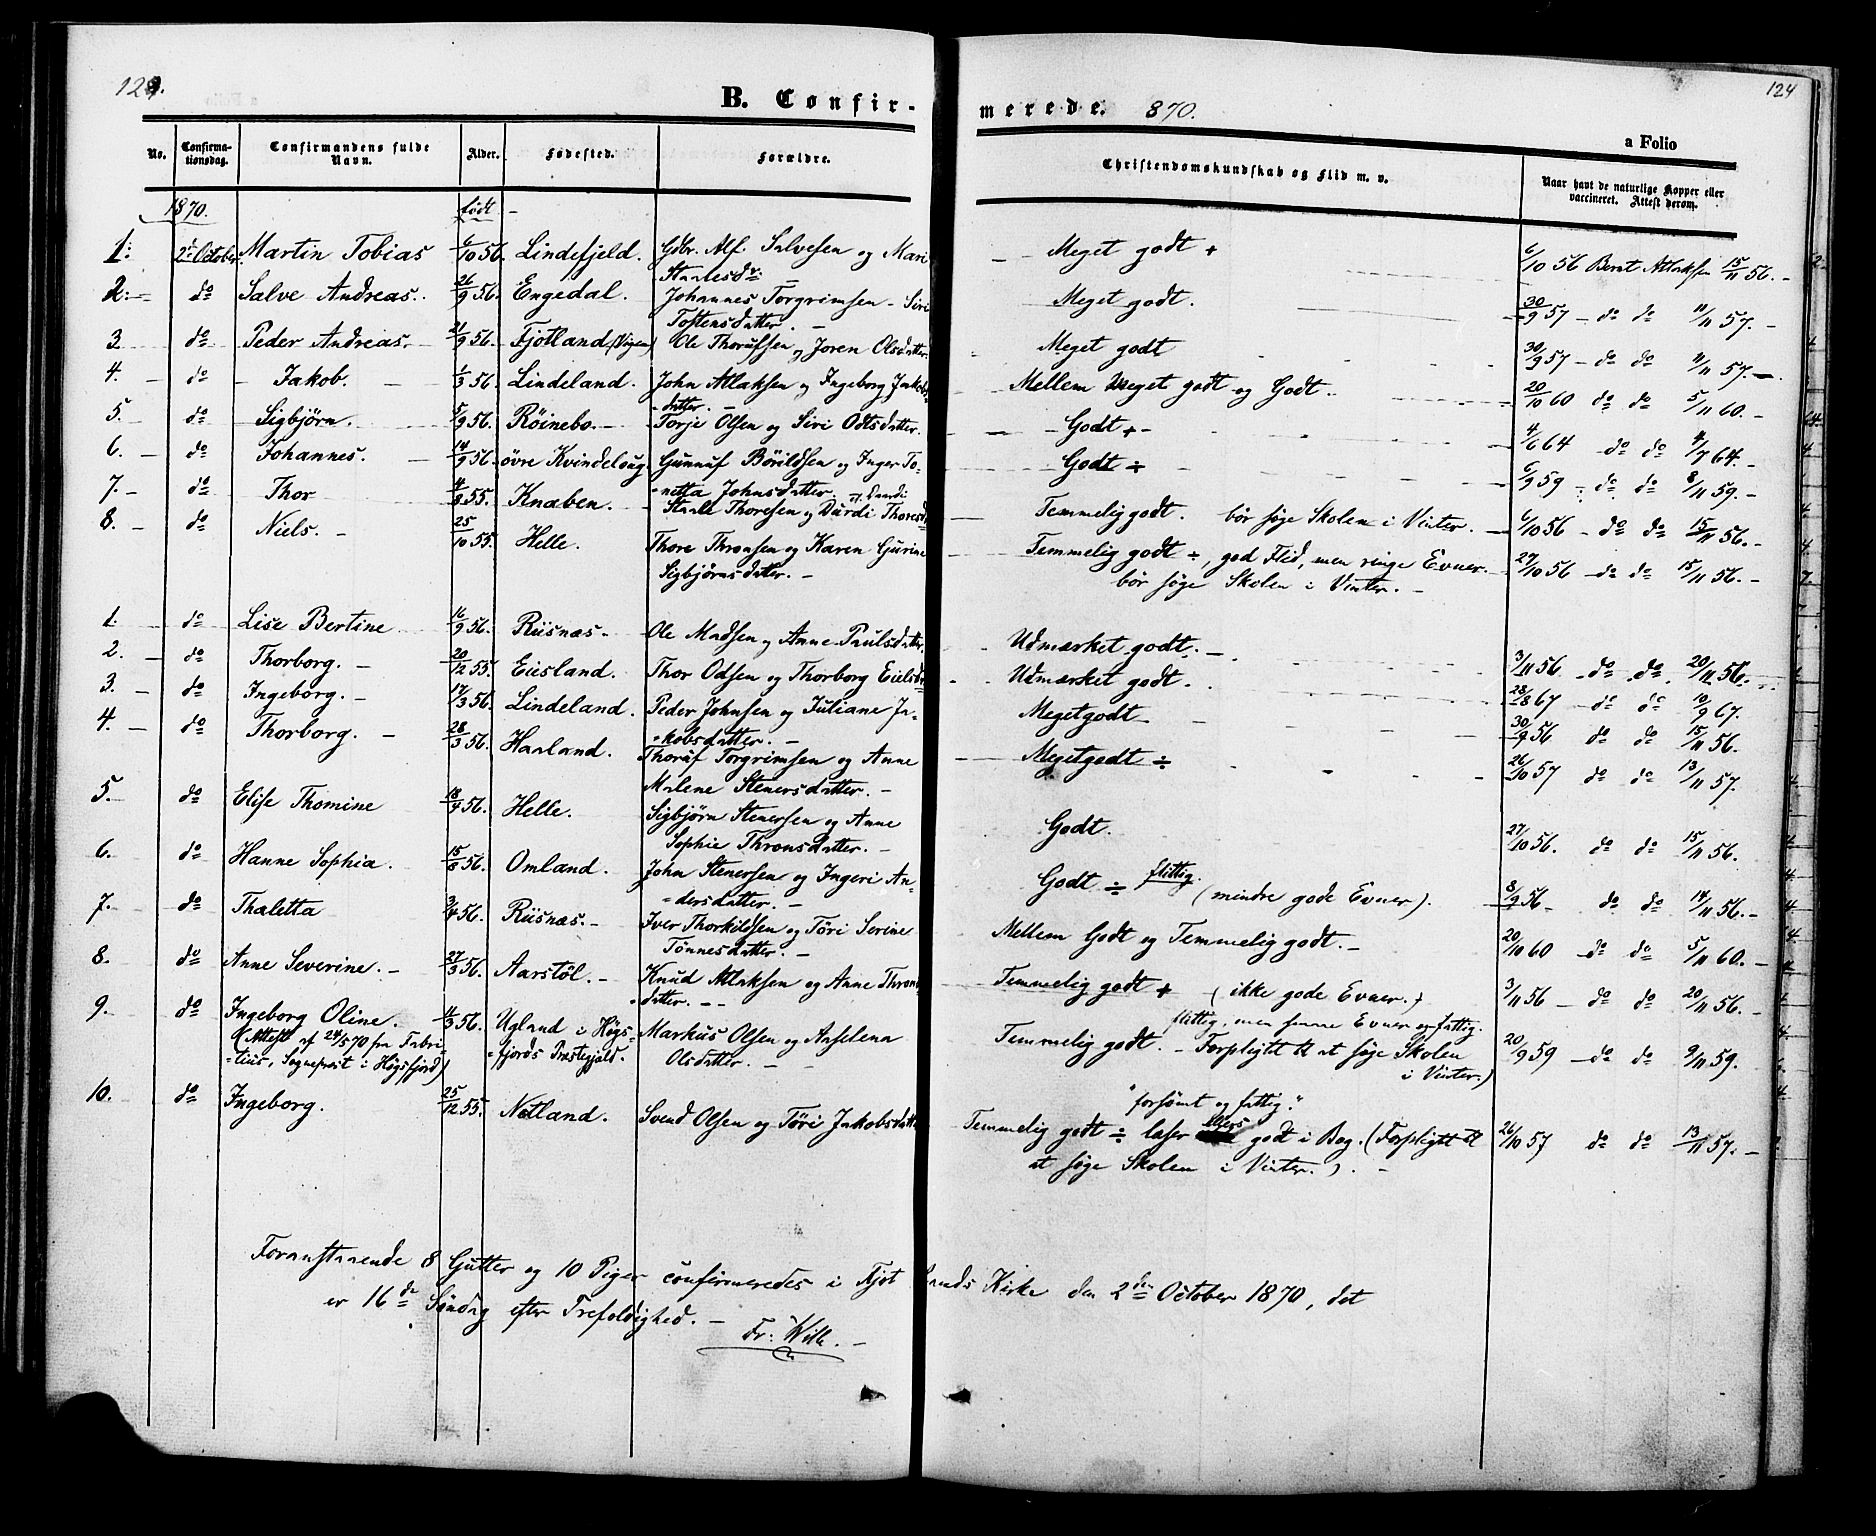 124
B. Confir-
merede. 870.
a Folio
No.
Confirma-
tionsdag.
Confirmandens fulde
Navn.
Alder.
Fødested.
Forældre.
Christendomskundskab og Flid m. v.
Naar havt de naturlige Kopper eller
vaccineret. Attest derom.
1870.
født
1. 2den October Martin Tobias 6/10 56. Lindefjeld. Gdbr. Alf. Salvesen og Mari Meget godt + 6/10 56 Bernt Atlaksen 15/11 56.
Staalesdr.
2. do Salve Andreas. 26/9 56. Engedal. Johannes Torgrimsen - Siri Meget godt. 30/9 57 - do do 11/11 57.
Tostensdatter.
3. do Peder Andreas. 21/9 56. Fjotland Ole Thorufsen og Joren Olsdatter. Meget godt 30/9 57 - do do 11/11 57.
4. do Jakob. 1/3 56. Lindeland. John Atlaksen og Ingeborg Jakobs- Mellem Meget godt og Godt. 20/10 60 do do 5/11 60.
datter.
5. do Sigbjörn. 5/9 56. Röinebo. Torje Olsen og Siri Odtsdatter. Godt + 4/6 64 do do 4/7 64.
6. do Johannes. 14/9 56. övre Kvindelaug. Gunnuf Börildsen og Inger To- Godt ÷ 6/9 59 - do do 8/11 59.
netta Johnsdatter.
7. do Thor 4/8 55. Knaben. Staale Thoresen og Durdi Thoresd. Temmelig godt. bör söge Skolen i Vinter. 6/10 56 - do do 15/11 56.
8. do Niels. 25/10 55. Helle. Thore Thronsen og Karen Gurine Temmelig godt ÷, god Flid, men ringe Evner. 27/10 56 - do do 15/11 56.
Sigbjörnsdatter.
bör söge Skolen i Vinter.
1. do Lise Bertine 16/9 56. Risnæs. Ole Madsen og Anne Paulsdatter Udmærket godt. 3/11 56 do do. 20/11 56.
2. do Thorborg. 20/12 55. Eiesland. Thor Odsen og Thorborg Eielsdr. Udmærket godt. 28/8 67 do do 10/9 67.
3. do Ingeborg. 17/3 56. Lindeland. Peder Johnsen og Juliane Ja- Meget godt 30/9 56 do do 15/11 56.
kobsdatter.
4. do Thorborg. 28/3 56. Haaland. Thoruf Torgrimsen og Anne Meget godt ÷ 26/10 57 do do 13/11 57.
Malene Stenersdatter.
5. do Elise Thomine 18/4 56. Helle. Sigbjörn Stenersen og Anne Godt. 27/10 56. do do 15/11 56.
Sophie Thronsdatter.
6. do Hanne Sophia. 15/8 56. Omland. John Stenersen og Ingeri An- Godt ÷ flittig. (mindre gode Evner). 8/9 56 do do 14/11 56.
dersdatter.
7. do Thaletta 3/4 56. Risnæs. Iver Thorkildsen og Töri Serine Mellem Godt og Temmelig godt. 20/10 60 do do 5/11 60.
Tönnesdatter.
8. do Anne Severine. 27/3 56. Aarstöl. Knud Atlaksen og Anne Throns- Temmelig godt + (ikke gode Evner.) 3/11 56 - do do 20/11 56.
datter.
9. do Ingeborg Oline. 11/3 56. Ugland i Högs- Markus Olsen og Aaselena flittig, men svane Evner og fattig.
(Attest af 24/5 70 fra Fabri- fjords Præstegjeld. Olsdatter. Temmelig godt. - Forpligtet til at söge Skolen 20/9 59 - do do 9/11 59.
tius, Sognepræst i Högsfjord) i Vinter.)
10. do Ingeborg. 25/12 55. Netland. Svend Olsen og Töri Jakobsdatter "forsömt og fattig."
Temmelig godt ÷ læser ellers godt i Bog. (Forpligtet til 26/10 57 do do 13/11 57.
at söge Skolen i Vinter.).
Foranstaaende 8 Gutter og 10 Piger confirmeredes i Fjotlands Kirke den 2den October 1870, det
er 16de Söndag efter Trefoldighed.
Fr: Wille.